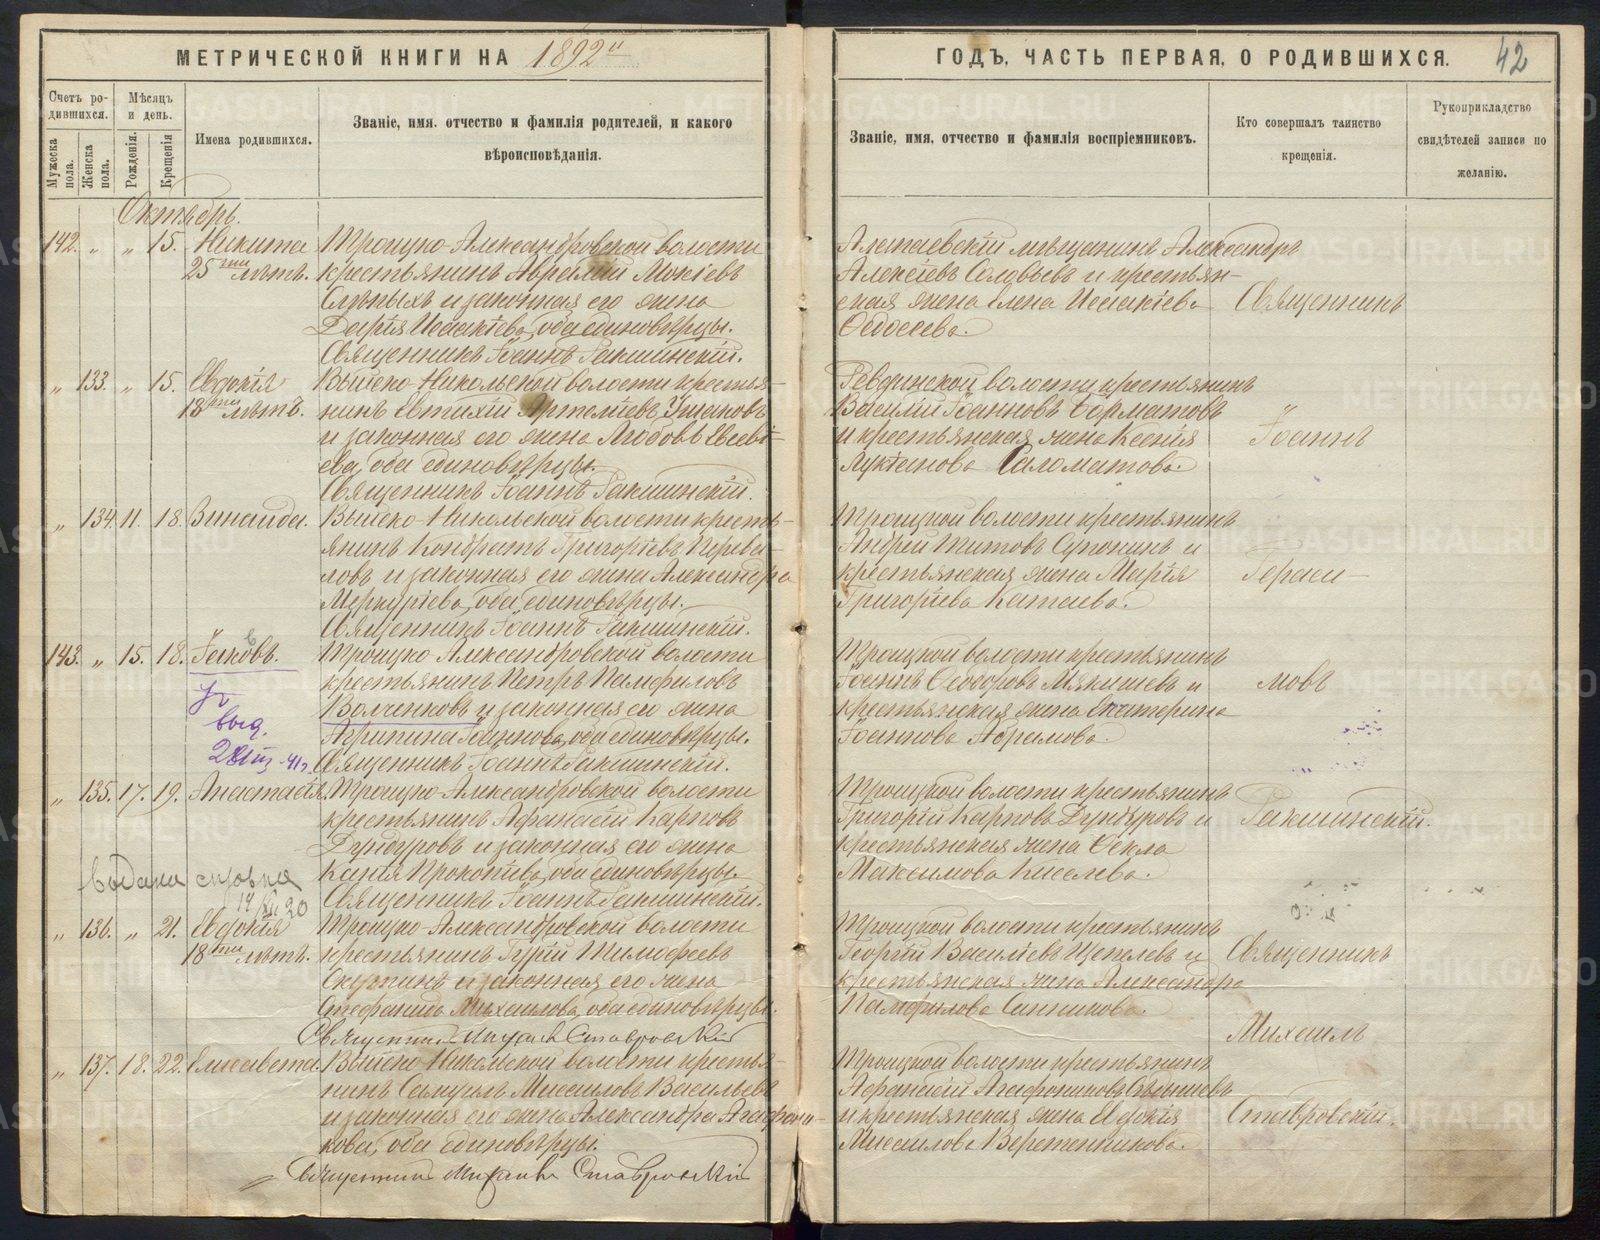 МЕТРИЧЕСКОЙ КНИГИ НА 1892й
Счетъ ро-
дившихся.
Мужеска пола.
Женска пола.
Мѣсяцъ
и день.
Рожденія.
Крещенія
Имена родившихся.
Званіе, имя, отчество и фамилія родителей, и какого
вѣроисповѣданія.
Октябрь.
142. „ „ 15. Никита
25ти лѣтъ.
Троицко-Александровской волости
крестьянинъ Авраамій Мокіевъ
Слѣпыхъ и законная его жена
Дарія Исаакіева, оба единовѣрцы.
Священникъ Іоаннъ Гакшинскій.
„ 133. „ 15. Евдокія
18ти лѣтъ.
Выйско-Никольской волости крестья-
нинъ Евтихій Ушаковъ
и законная его жена Любовь Евсеві-
ева, оба единовѣрцы.
Священникъ Іоаннъ Гакшинскій.
„ 134. 11. 18. Зинаида.
Выйско-Никольской волости кресть-
янинъ Кондратъ Григоріевъ Перева-
ловъ и законная его жена Александра
Меркуріева, оба единовѣрцы.
Священникъ Іоаннъ Гакшинскій.
143. „ 15. 18. Іаковъ.
Троицко-Александровской волости
крестьянинъ Петръ Памфиловъ
Волченковъ и законная его жена
Агрипина Іоаннова, оба единовѣрцы.
Священникъ Іоаннъ Гакшинскій.
выд.
„ 135. 17. 19. Анастасія.
Троицко-Александровской волости
крестьянинъ Афанасій Карповъ
и законная его жена
Ксенія Прокопіева, оба единовѣрцы.
Священникъ Іоаннъ Гакшинскій.
Выдана справка
„ 136. „ 21. Евдокія
18ти лѣтъ.
Троицко-Александровской волости
крестьянинъ Гурій Тимофеевъ
и законная его жена
Стефанида Михаилова, оба единовѣрцы.
Священникъ Михаилъ Ставровскій
„ 137. 18. 22. Елисавета.
Выйско-Никольской волости крестья-
нинъ Самуилъ Мисаиловъ Васильевъ
и законная его жена Александра Агафони-
кова, оба единовѣрцы.
Священникъ Михаилъ Ставровскій
ГОДЪ, ЧАСТЬ ПЕРВАЯ, О РОДИВШИХСЯ.
42
Званіе, имя, отчество и фамилія воспріемниковъ.
Кто совершалъ таинство
крещенія.
Рукоприкладство
свидѣтелей записи по
желанію.
Алапаевскій мѣщанинъ Александръ
Алексіевъ Соловьевъ и крестьян-
ская жена Елена Исаакіева
Ѳедосеева.
Ревдинской волости крестьянинъ
Василій Іоанновъ Борматовъ
и крестьянская жена Ксенія
Лукіанова Саломатова.
Троицкой волости крестьянинъ
Андрей Титовъ и
крестьянская жена Марія
Григоріева Катаева.
Троицкой волости крестьянинъ
Іоаннъ Ѳеодоровъ Мякишевъ и
крестьянская жена Екатерина
Іоаннова Абрамова.
Троицкой волости крестьянинъ
Григорій Карповъ и
крестьянская жена Ѳекла
Максимова Киселева.
Троицкой волости крестьянинъ
Георгій Василіевъ Щепелевъ и
крестьянская жена Александра
Памфилова Санникова.
Троицкой волости крестьянинъ
Афанасій Агафониковъ
и крестьянская жена Евдокія
Мисаилова Веретенникова.
Священникъ
„
Іоаннъ
Гераси-
мовъ
Гакшинскій.
Священникъ
Михаилъ
Ставровскій.
METRIKI.GASO-URAL.RU